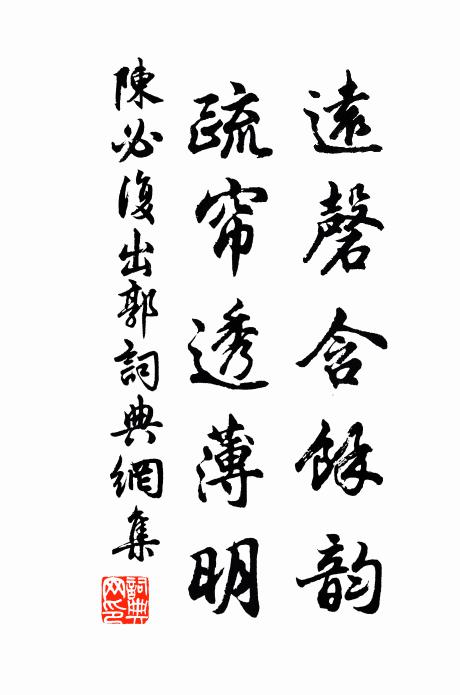 遠磬含餘韵
疏帘透薄明
陳必復出郭詞典網集
詞典網印